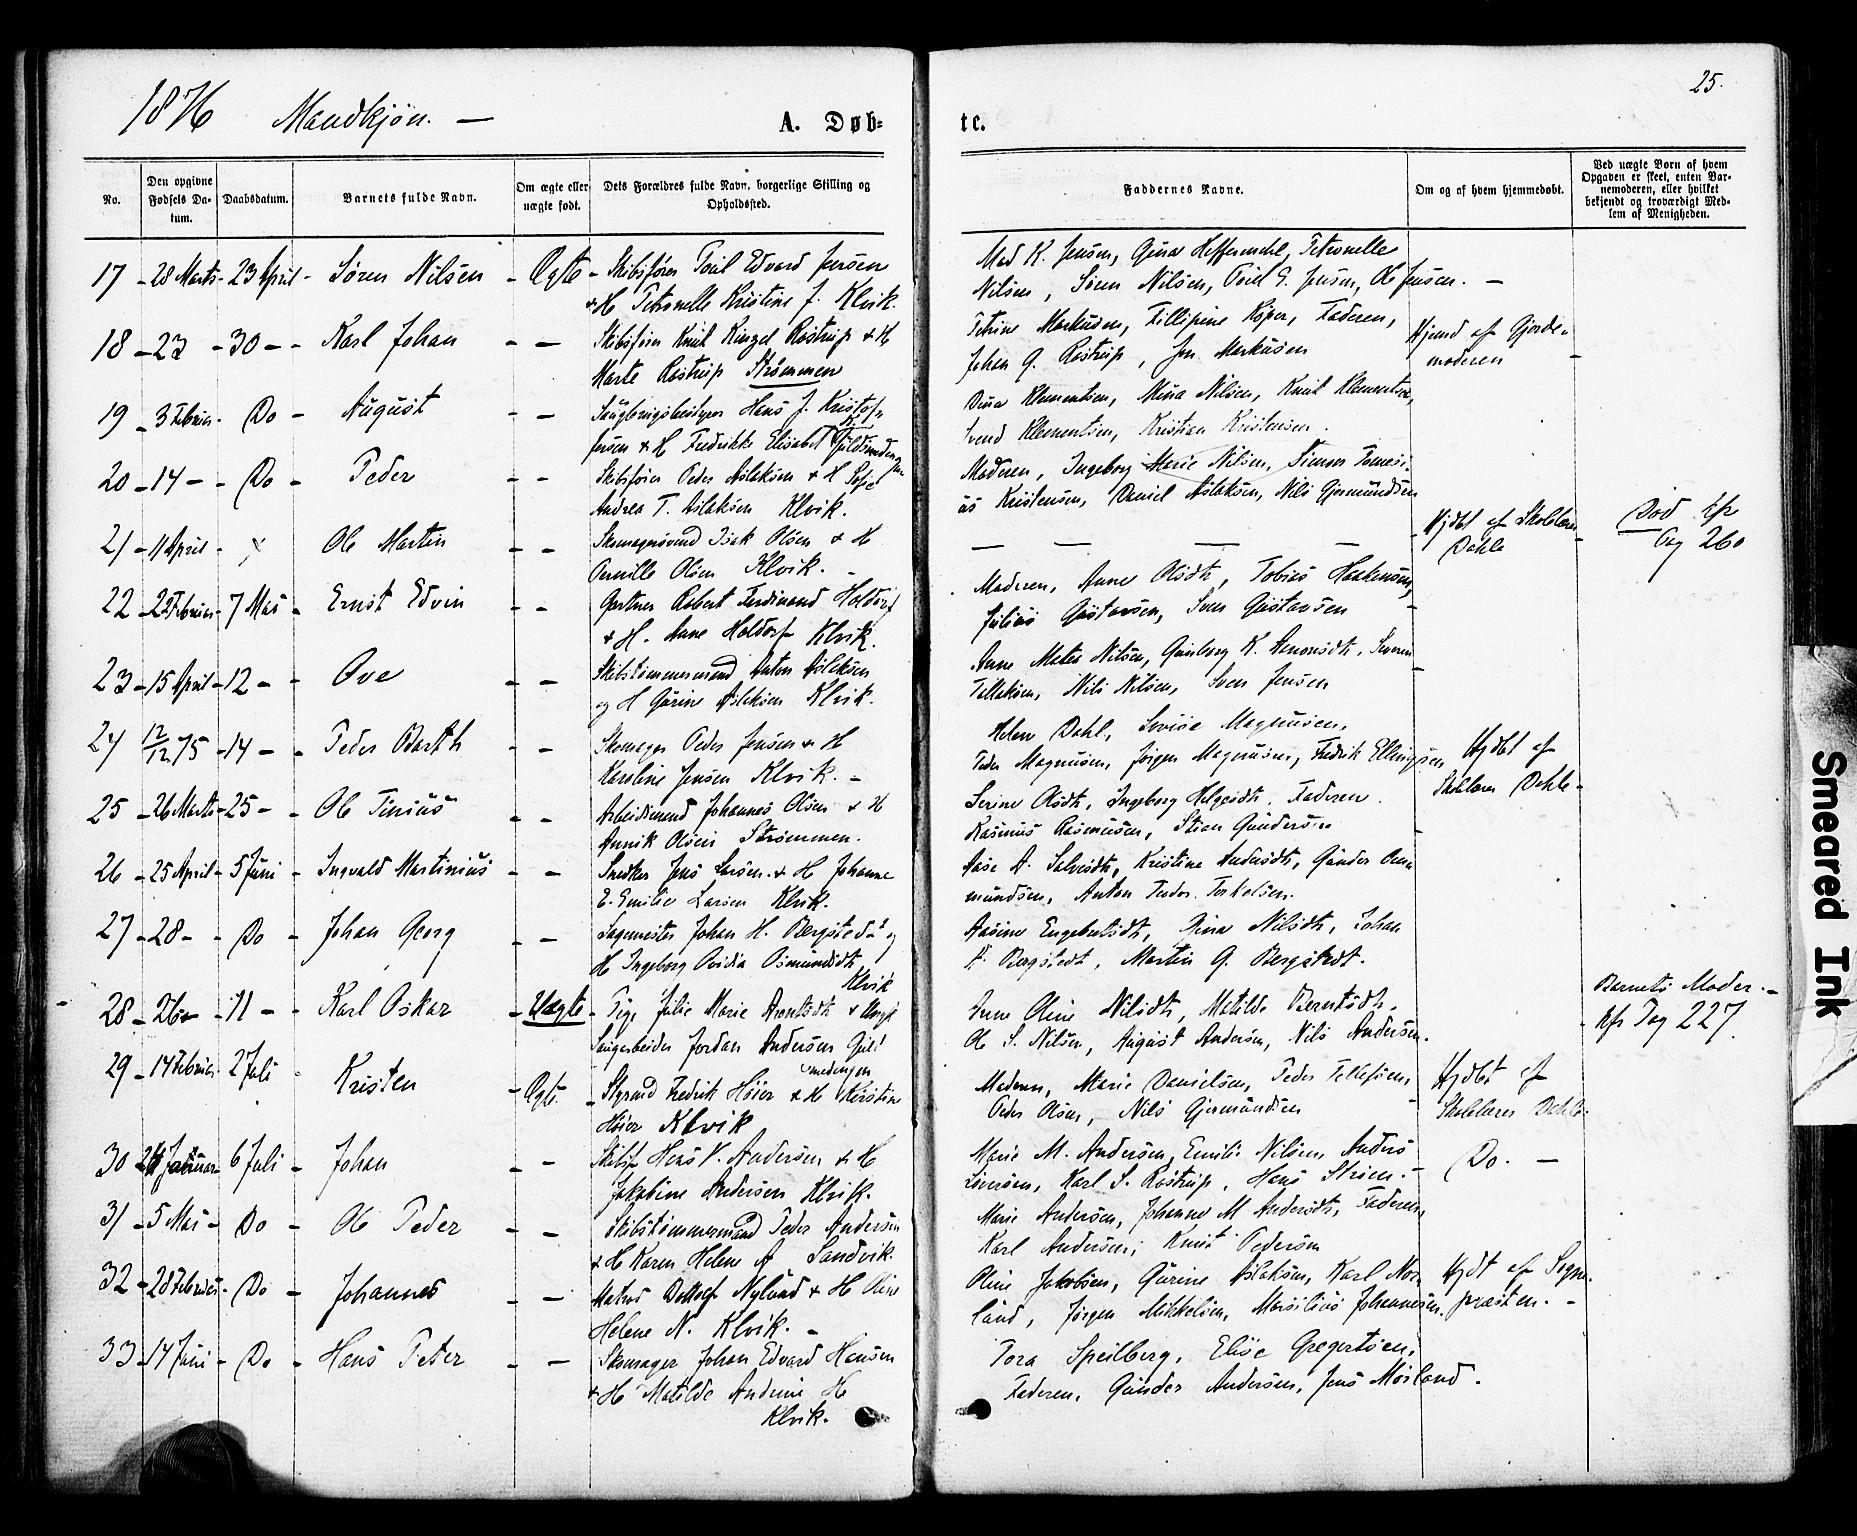 1876 Mandkjön. —
A. Døb-
te.
25.
No.
Den opgivne Fødsels Da-tum.
Daabsdatum.
Barnets fulde Navn.
Om ægte eller uægte født.
Dets Forældres fulde Navn, borgerlige Stilling og Opholdssted.
Faddernes Navne.
Om og af hvem hjemmedøbt.
Ved uægte Børn af hvem Opgaven er skeet, enten Bar-nemoderen, eller hvilket bekjendt og troværdigt Med-lem af Menigheden.
17 - 28 Marts - 23 April - Sören Nilsen - Ægte - Skibsförer Edvard Jensen
& H Petronelle Kristine J. Klvik.
K. Jensen, Petronelle
Nilsen, Sören Nilsen, Jensen, Ole Jensen. —
18 - 23 - 30 - - Karl Johan - - Skibsförer Knut Rostrup & H
Marte Rostrup Strömmen
Petrine Markusen, Faderen,
Johan G. Rostrup, Markusen
Hjemd af Gjorde-
moderen
19 - 3 Februar - Do - August - - Hans J. Kristof-
fersen & H Fredrikke Elisabet
Klementsen, Mina Nilsen, Knut Klementsen,
Svend Klementsen, Kristian Kristensen.
20 - 14 - - Do - Peder - - Skibsförer Peder Aslaksen & H Sofie
Andrea T. Aslaksen Klvik.
Moderen, Ingeborg Marie Nilsen,
Kristensen, Daniel Aslaksen, Nils Gjermundsen
21 - 11 April - x Ole Martin - - Skomagersvend Isak Olsen & H
Pernille Olsen Klvik. -
— — — —
Hjdbt af Skolelærer
Dahle
Död
Pag 260
22 - 22 Februar - 7 Mai - Ernst Edvin - - Gartner Robert Ferdinand Holdorf
& H. Anne Holdorf Klvik.
Moderen, Anne Olsdt, Tobias Haakensen,
Julius Gustavsen, Sven Gustavsen
23 - 15 April - 12 - - Ove - - Skibstömmermand Anton Aslaksen
og H Gurine Aslaksen Klvik.
Anne Nilsen, Gunborg K.
Tellaksen, Nils Nilsen, Sven Jensen
24 12/12 75 - 14 - - Peder Barth - - Skomager Peder Jensen & H
Karoline Jensen Klvik. -
Helene Dahl, Lovise Magnusen,
Peder Magnusen, Jörgen Magnusen, Fredrik Ellingsen
Hjdbt af
Skolelærer Dahle -
25 - 26 Marts - 25 - - Ole Tinius - - Arbeidsmand Johannes Olsen & H
Annik Olsen Strömmen.
Serine Olsdt, Ingeborg Helgesdt, Faderen.
Rasmus Rasmusen, Stian Gundersen
26 - 25 April - 5 Juni - Ingvald Martinius - - Snedker Jens Larsen & H Johanne
E. Emilie Larsen Klvik.
Aase A. Salvesdt, Kristine Andersdt, Gunder
mundsen, Anton Torkelsen.
27 - 28 - - Do - Johan Georg - - Johan H. Bergstedt og
H Ingeborg Ovidia Osmundsdt
Klvik
Engebretsdt, Nilsdt, Johan
H. Bergstedt, Martin G. Bergstedt.
28 - 26 - 11 - Karl Oskar - Uægte - Pige Julie Marie Arentsdt &
Jordan Andersen Guld
smedengen
Anne Oline Nilsdt, Matilde Berntsdt,
Ole S. Nilsen, August Andersen, Nils Andersen.
Barnets Moder. -
Kfr Pag 227
29 - 14 Februar - 2 Juli - Kristen - Ægte - Styrmd Fredrik Höier & H Kirstine
Höier Klvik
Moderen, Marie Danielsen, Peder Tellefsen,
Peder Olsen, Nils Gjermundsen
Hjdbt af
Skolelærer Dahle.
30 - Januar - 6 Juli - Johan - - Skibsf Hans V. Andersen & H
Jakobine Andersen Klvik.
Marie M. Andersen, Emilie Nilsen, Anders
Karl S. Rostrup, Hans
Do. -
31 - 5 Mai - Do - Ole Peder - - Skibstömmermand Peder Andersen
& H Karen Helene A Sandvik.
Marie Andersen, Johanne M Andersdt, Faderen,
Karl Andersen, Knut Pedersen
32 - 28 Februar - Do - Johannes - - Matros Nylund & H Oline
Helene N. Klvik. -
Oline Jakobsen, Gurine Aslaksen, Karl Nor-
lund, Jörgen Mikkelsen, Marsilius Johannesen.
Hjdt af Sogne-
præsten. -
33 - 14 Juni - Do - Hans Peter - - Skomager Johan Edvard Hansen
& H Matilde Andrine H
Klvik.
Tora Speilberg, Elise Gregertsen,
Faderen, Gunder Andersen, Jens Mörland.
Smeared Ink